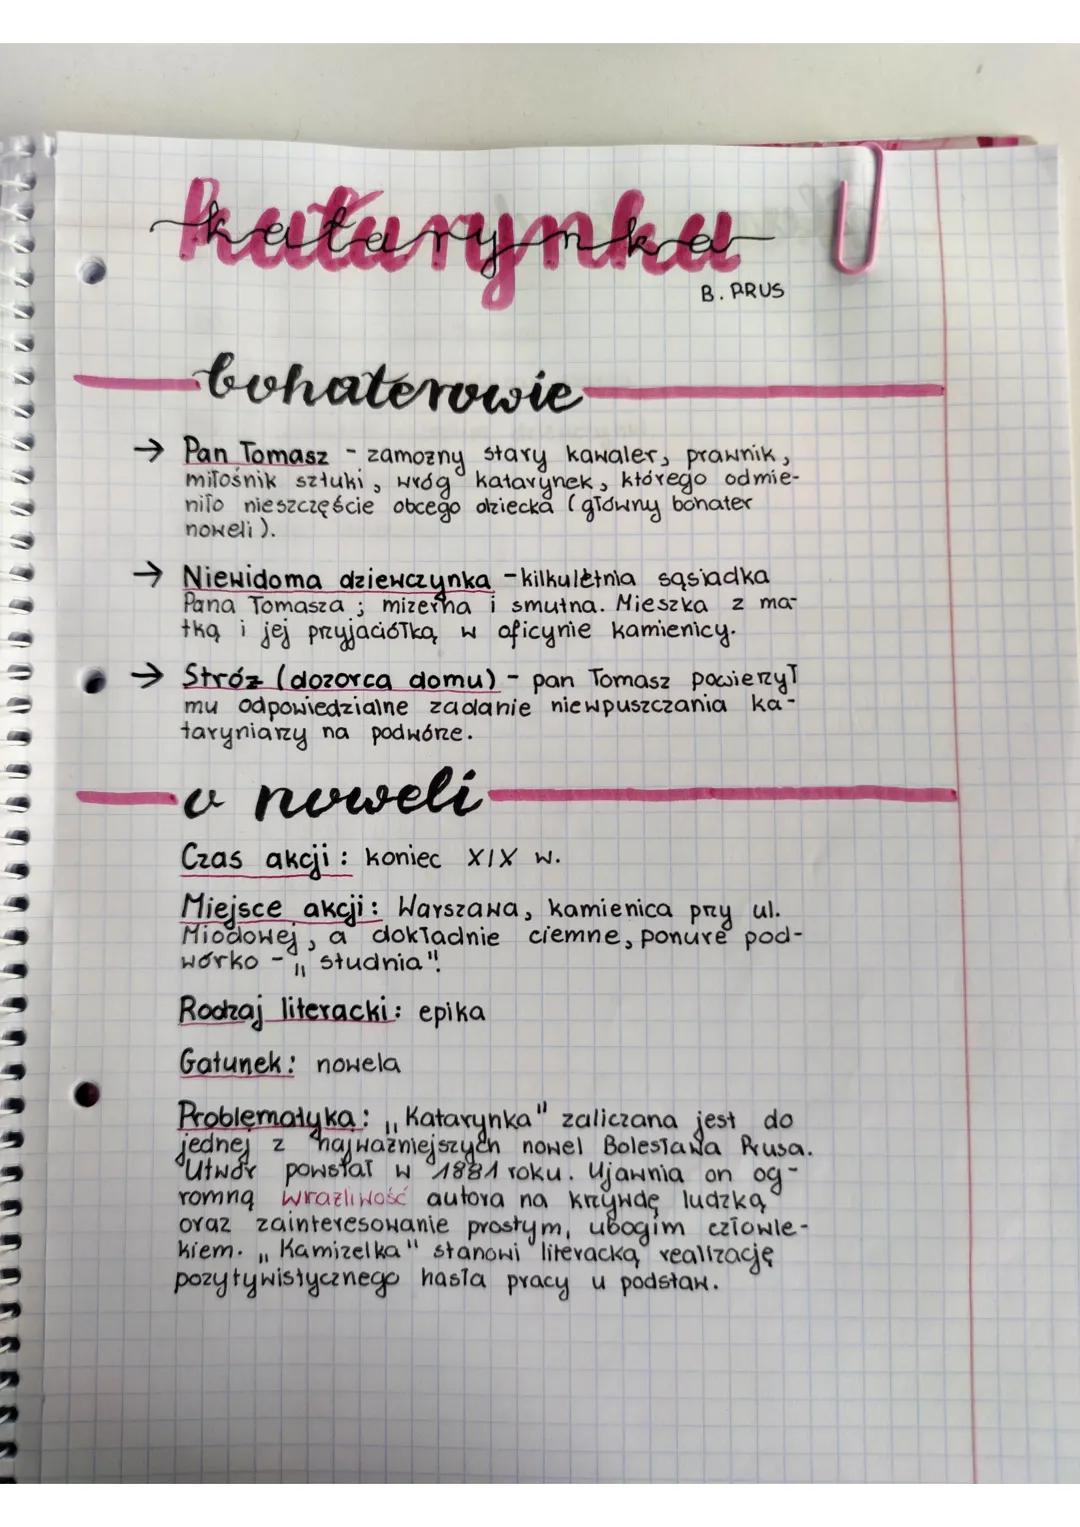 katarynka
B. PRUS
bohaterowie
→ Pan Tomasz - zamożny stary kawaler, prawnik,
miłośnik sztuki, wróg katarynek, którego odmie-
niło nieszczęście obcego dziecka (główny bohater
noweli).
→ Niewidoma dziewczynka - kilkuletnia sąsiadka
Pana Tomasza; mizerna i smutna. Mieszka z ma-
tką i jej przyjaciółką w oficynie kamienicy.
→ Stróż (dozorca domu) - pan Tomasz powierzył
mu odpowiedzialne zadanie niewpuszczania ka-
taryniarzy na podwórze.
o noweli
Czas akcji: koniec XIX w.
Miejsce akcji: Warszawa, kamienica przy ul.
Miodowej, a dokładnie ciemne, ponure pod-
wórko - „studnia".
Rodzaj literacki: epika
Gatunek: nowela
Problematyka: „Katarynka" zaliczana jest do
jednej z najważniejszych nowel Bolesława Prusa.
Utwór powstał w 1881 roku. Ujawnia on og-
romną wrażliwość autora na krzywdę ludzką
oraz zainteresowanie prostym, ubogim człowie-
kiem. „Kamizelka" stanowi literacką realizację
pozytywistycznego hasła pracy u podstaw.